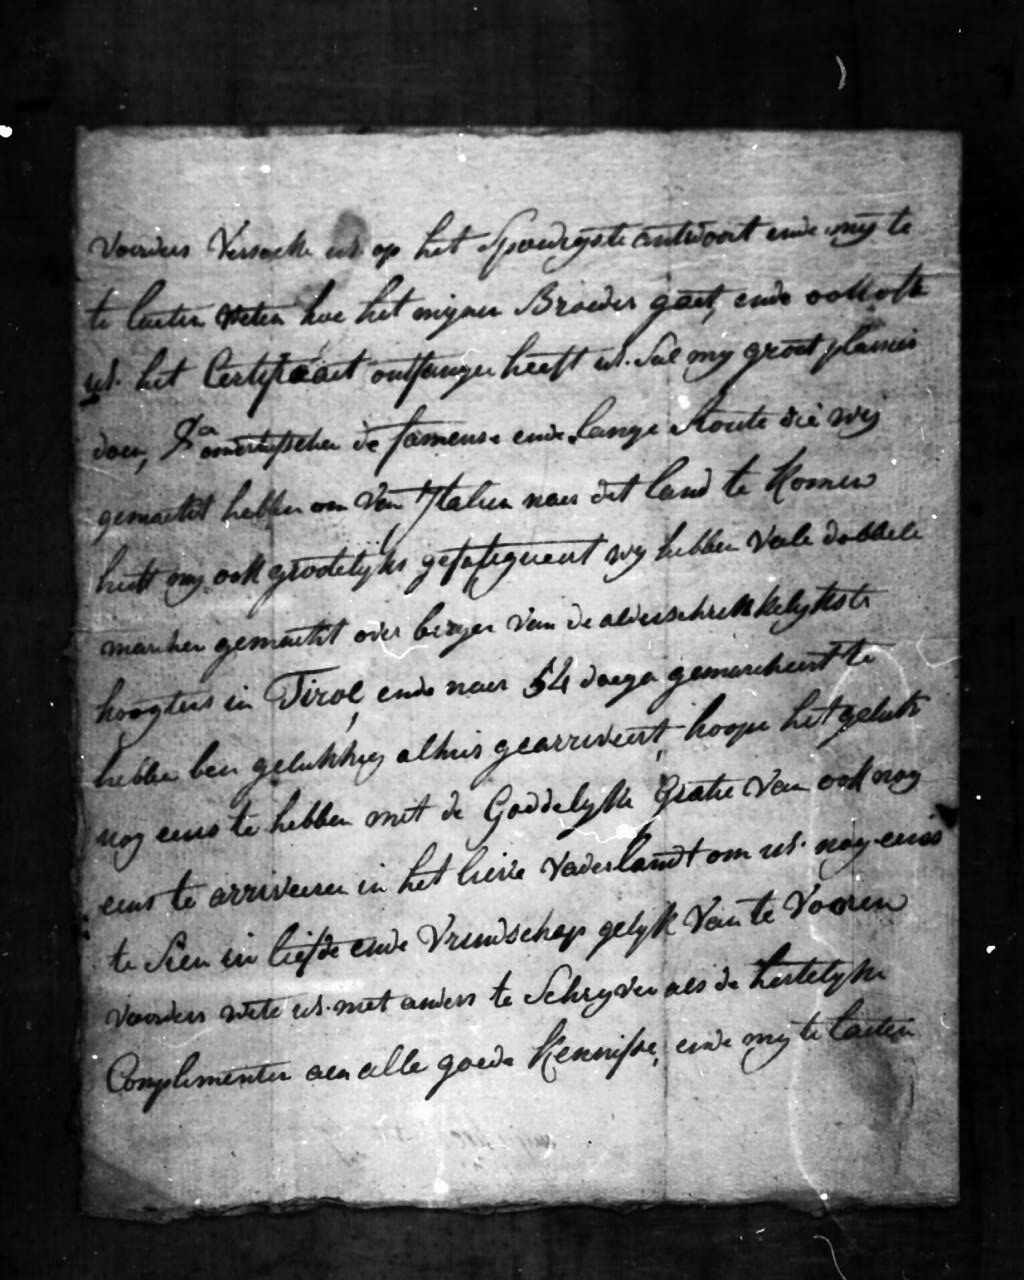 voorders versoeke ul. op het spoedigste antwoort ende mij te
te laeten weten hoe het mijnen Broeder gaet, ende ook oft
ul. het Certificaet ontfangen heeft ul. sal my groot plaisier
doen, de fameuse ende lange Route die wij
gemaekt hebben om van Italien naer dit land te komen
heeft my ook grootelyks gefatigueert wy hebben vele dobbele
marchen gemaekt over bergen van de alderschrikkelykste
hoogten in Tirol, ende naer 54 daegen gemarcheert te
hebben ben gelukkig alhier gearriveert, hoope het geluk
nog eens te hebben met de Goddelyke Gratie van ook nog
eens te arriveren in het lieve Vaderlandt om ul. nog eens
te sien in liefde ende vrindschap gelyk van te vooren
voorders wete ul. niet anders te schryven als de hertelyke
Complimenten aen alle goede kennisse, ende my te laeten